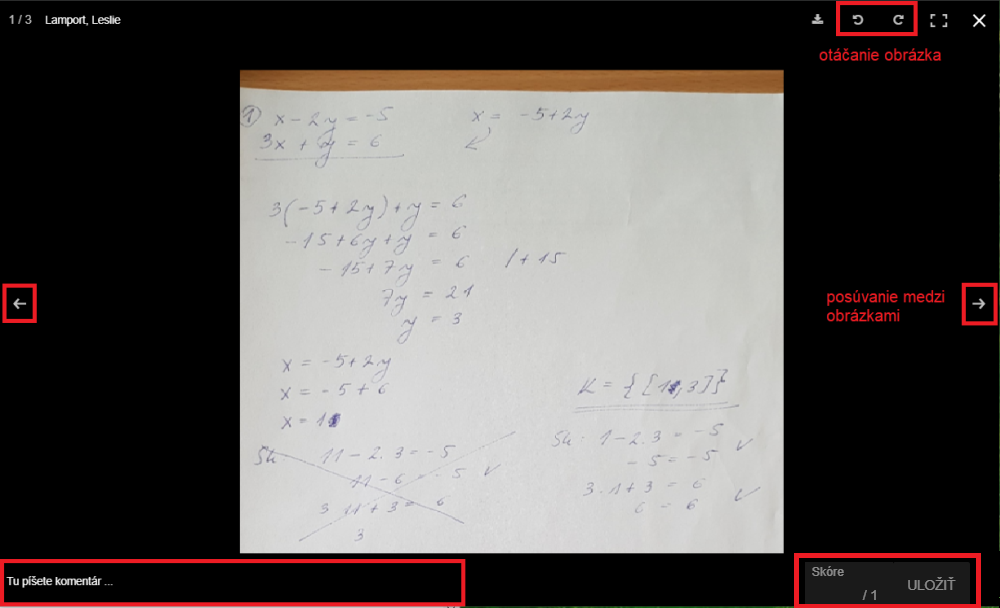 1 / 3 Lamport, Leslie
otáčanie obrázka
1 x - 2y = -5 x = -5+2y
3x + y = 6
3(-5+2y)+y = 6
-15+6y+y = 6
-15+7y = 6 /+15
7y = 21
y = 3
posúvanie medzi
obrázkami
x = -5+2y
x = -5+6
x = 1
K = {[1,3]}
Sk 11-2.3 = -5
11-6 = -5 ✓
3 11+3 = 6
3
Sk: 1-2.3 = -5 ✓
-5 = -5
3.1+3 = 6 ✓
6 = 6
Tu píšete komentár ...
Skóre
/ 1 ULOŽIŤ